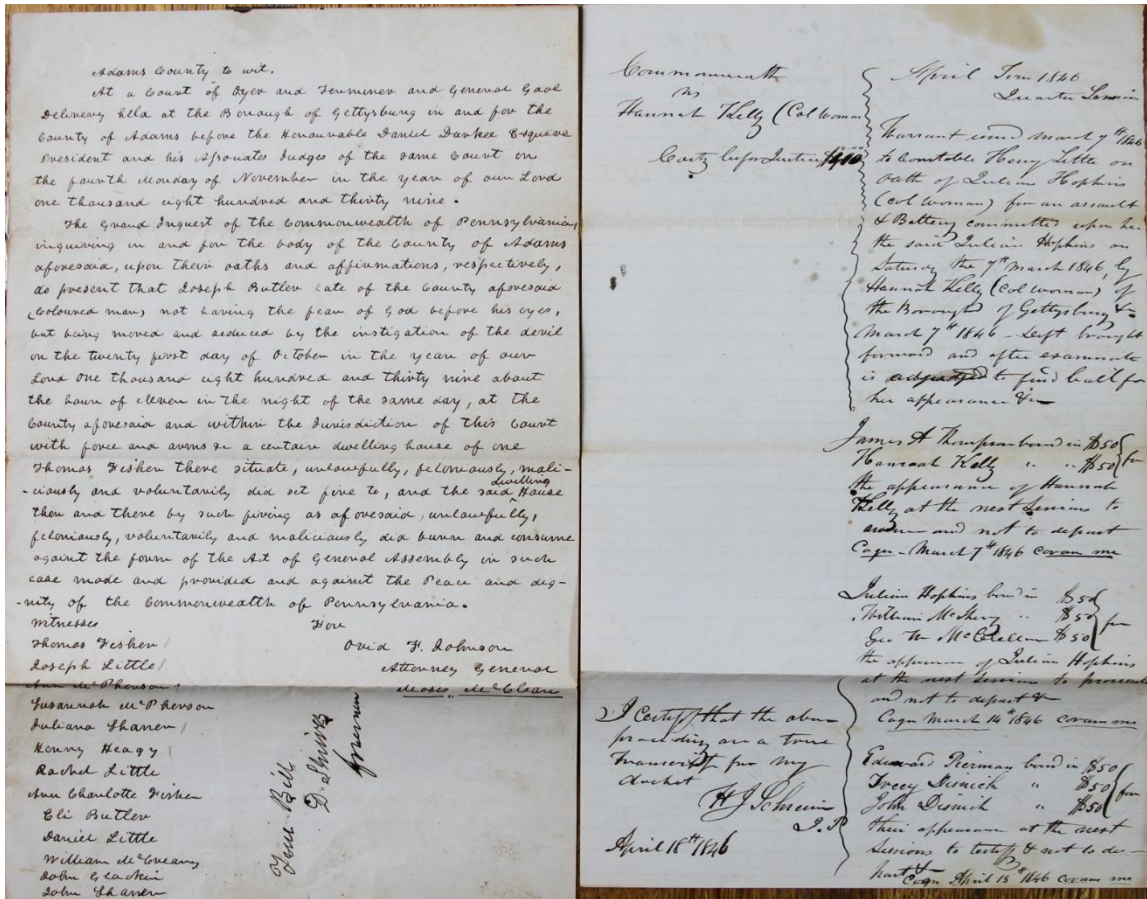 Adams County to wit.
At a Court of Oyer and Terminer and General Gaol
Delivery held at the Borough of Gettysburg in and for the
County of Adams before the Honourable Daniel Durkee Esquire
President and his Associate Judges of the same Court on
the fourth Monday of November in the year of our Lord
one thousand eight hundred and thirty nine.
The Grand Inquest of the Commonwealth of Pennsylvania,
inquiring in and for the body of the County of Adams
aforesaid, upon their oaths and affirmations, respectively,
do present that Joseph Butler late of the County aforesaid
(Coloured man) not having the fear of God before his eyes,
but being moved and seduced by the instigation of the devil
on the twenty first day of October in the year of our
Lord one thousand eight hundred and thirty nine about
the hour of eleven in the night of the same day, at the
County aforesaid and within the Jurisdiction of this Court
with force and arms &c a certain dwelling house of one
Thomas Fisher there situate, unlawfully, feloniously, mali-
-ciously and voluntarily did set fire to, and the said Dwelling House
then and there by such firing as aforesaid, unlawfully,
feloniously, voluntarily and maliciously did burn and consume
against the form of the Act of General Assembly in such
case made and provided and against the Peace and dig-
-nity of the Commonwealth of Pennsylvania.
Witnesses
Thomas Fisher
Joseph Little
Ann McPherson
Susannah McPherson
Juliana Sharrer
Henry Heagy
Rachel Little
Ann Charlotte Fisher
Eli Butler
Daniel Little
William McCreary
John
John Sharrer
For
Ovid F. Johnson
Attorney General
Moses McClean
True Bill
foreman
Commonwealth
vs
Hannah Kelly (Col Woman
Costs before Justice
I certify that the above
proceeding are a true
Transcript from my
docket
J.P
April 18th 1846
April Term 1846
Quarter Session
Warrant issued march 7th 1846
to Constable Henry Little on
oath of Julian Hopkins
(Col Woman) for an assault
& Battery committed upon her
the said Julian Hopkins on
Saturday the 7th march 1846, by
Hannah Kelly (Col Woman) of
the Borough of Gettysburg &c
March 7th 1846 - Deft brought
forward and after
is to find bail for
her appearance &c
James A Thompson bound in $50
Hannah Kelly " " $50 for
the appearance of Hannah
Kelly at the next Sessions to
answer and not to depart
Cogn - March 7th 1846 coram me
Julian Hopkins bond in $50
William McSherry $50 for
Geo W McClellan $50
the appearan of Julian Hopkins
at the next Sessions to prosecute
and not to depart &c
Cogn March 14th 1846 coram me
Edward bond in $50
$50 for
John " $50
their appearan at the next
Sessions to testify & not to de-
part &c
Cogn April 15th 1846 coram me